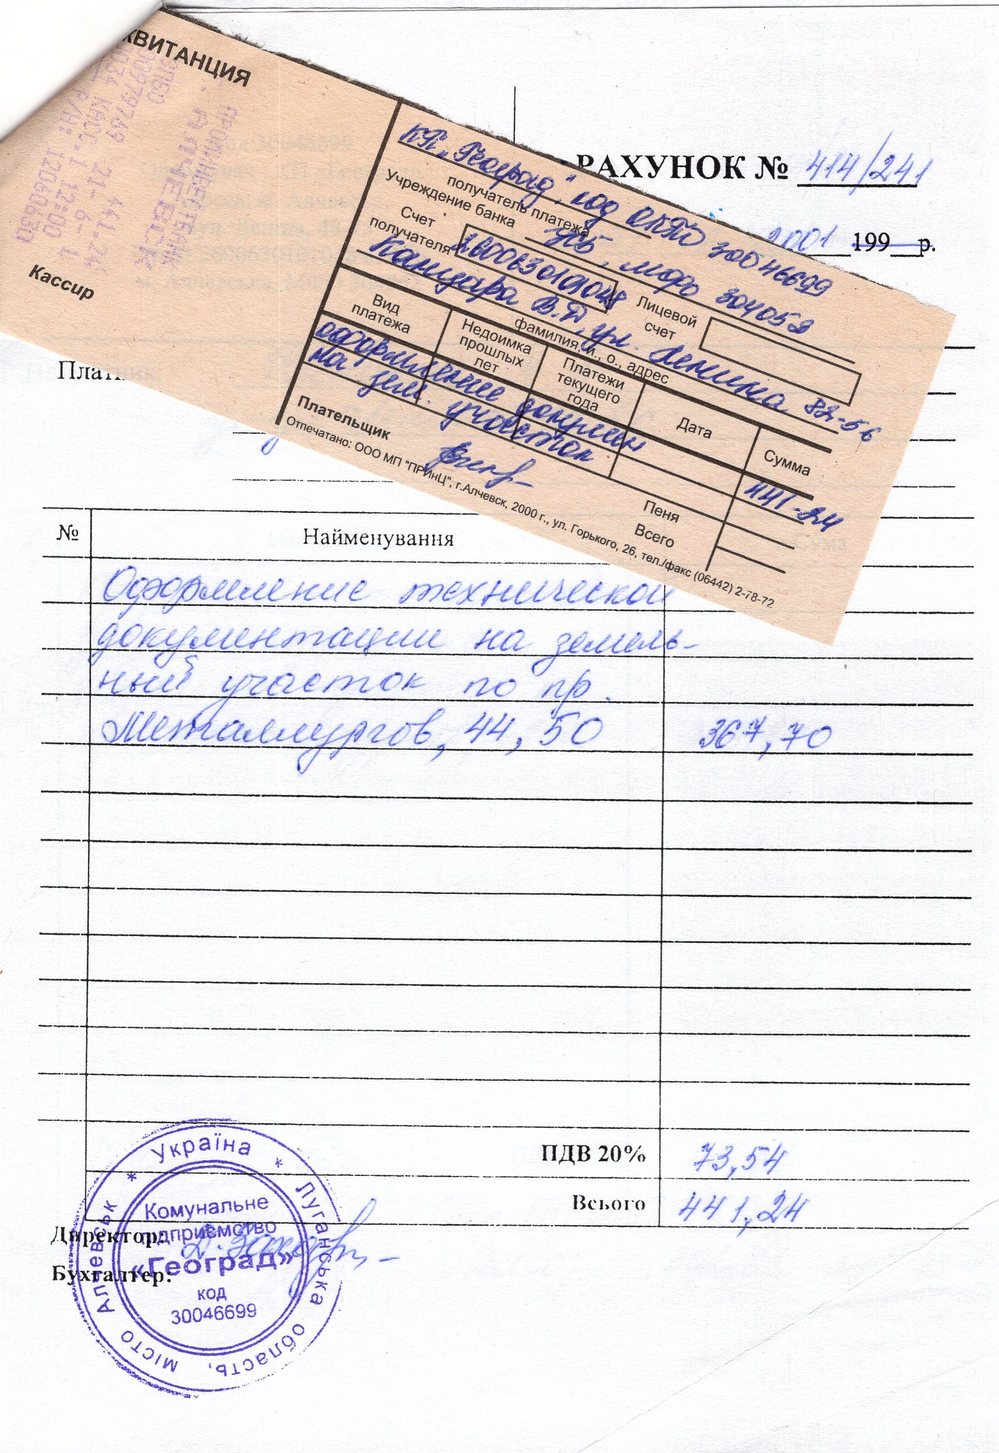 КВИТАНЦИЯ
Кассир
КП „Геоград", код ОКПО 30046699
получатель платежа
Учреждение банка
МФО 304052
Счет
получателя
Лицевой
счет
В.Д, ул. Ленина 82-56
фамилия, и., о., адрес
Вид
платежа
Недоимка
прошлых
лет
Платежи
текущего
года
Дата
Сумма
оформление докумен
на зем. участок
441-24
Пеня
Всего
Плательщик
Отпечатано: ООО МП "ПРИнЦ", г.Алчевск, 2000 г., ул. Горького, 26, тел./факс (06442) 2-78-72
РАХУНОК № 414/241
2001 199 р.
№
Найменування
Оформление технической
документации на земель-
ный участок по пр.
Металлургов, 44, 50
367,70
ПДВ 20%
73,54
Всього
441,24
Директор:
Бухгалтер:
* Україна * Луганська область, місто Алчевськ
Комунальне
підприємство
«Геоград»
код
30046699